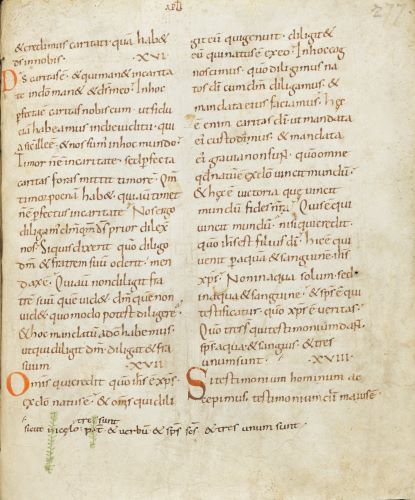 & credimus caritati quā hab&
d̄s in nobis. XVI.
D̄s caritas ē. & qui man& in carita
te in dō man& & d̄s in eo. In hoc
pfecta ē caritas nobiscum. ut fidu
ciā habeamus in die iudicii. qui
a sic ille ē. & nos sum' in hoc mundo.
Timor n̄ ē in caritate. sed pfecta
caritas foras mittit timorē. Qm̄
timor poenā hab&. qui autē tim&
n̄ ē pfectus in caritate. Nos ergo
diligam' d̄m qm̄ d̄s prior dilex
nos. Si quis dixerit quō diligo
d̄m. & fratrem suū oderit. men
dax ē. Qui a n̄ non diligit fra
trē suū quē uid&. d̄m quē non
uid& quomodo potest diligere.
& hoc mandatū a dō habemus.
ut qui diligit d̄m. diligat & fra
suum XVII.
Omis qui credit quō ih̄s ē xp̄s.
ex dō natus ē. & om̄s qui dili
git eū qui genuit. diligit &
eū qui natus ē ex eo. In hoc cog
noscimus quō diligimus na
tos d̄i cum d̄m diligamus. &
mandata eius faciamus. hęc
ē enim caritas d̄i ut mandata
ei' custodim'. & mandata
ei' grauia non sūt. quō omne
qd̄ natū ē ex dō uincit mundū.
& hęc ē uictoria que uincit
mundū fides nr̄a. Quis ē qui
uincit mundū. nisi qui credit.
quō ih̄s est filius d̄i. hic ē qui
uenit p aqua & sanguinē. ih̄s
xp̄s. Non in aqua solum. sed
in aqua & sanguine. & sp̄s ē qui
testificatur quō xp̄s ē ueritas.
Quō tres qui testimoniū dat.
sp̄s aqua & sanguis. & tres
unum sunt. XVIII.
Si testimonium hominum ac
cepimus. testimonium d̄i maius ē.
tres sunt
sicut in cęlo pat̄ & uerbū & sp̄s sc̄s. & tres unum sunt